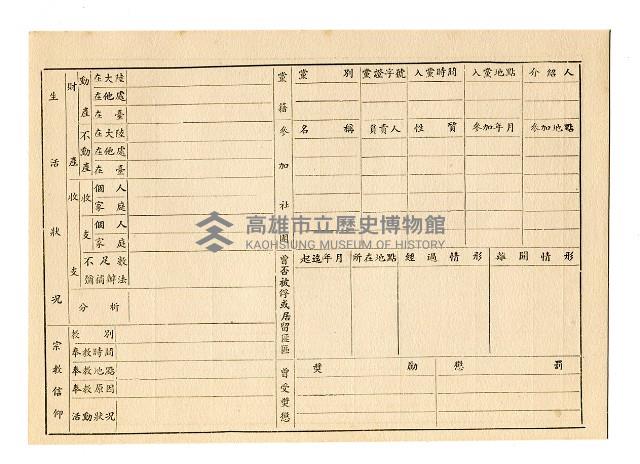 生活狀況
財產
動產
在大陸
在他處
在臺
不動產
在大陸
在他處
在臺
收支
收
個人
家庭
支
個人
家庭
不足數
彌補辦法
分析
宗教信仰
教別
奉教時間
奉教地點
奉教原因
活動狀況
黨籍
黨別 黨證字號 入黨時間 入黨地點 介紹人
參加社團
名稱 負責人 性質 參加年月 參加地點
曾否被俘或居留匪區
起迄年月 所在地點 經過情形 離開情形
曾受獎懲
獎勵 懲罰
高雄市立歷史博物館
KAOHSIUNG MUSEUM OF HISTORY